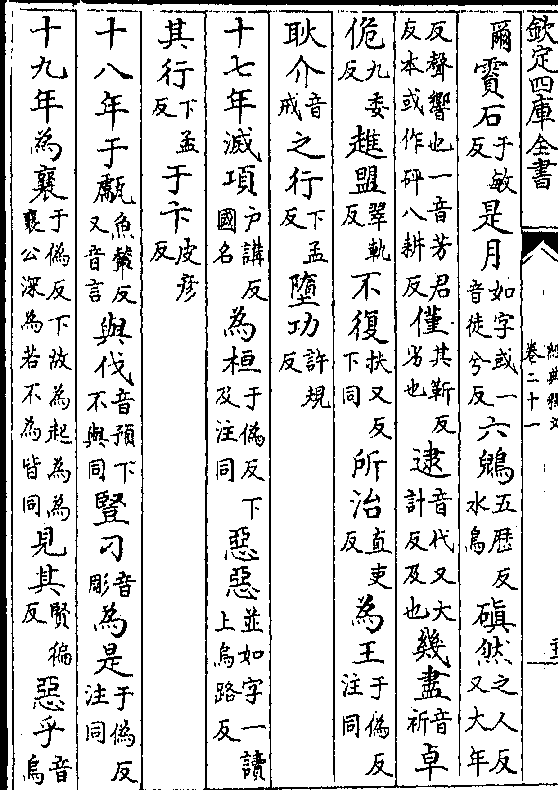 欽定四庫全書
經典釋文
卷二十一
爾霣石于敏反是月如字或一音徒兮反六鶂五歷反水鳥磌然之人反又大年
反聲響也一音芳君反本或作砰八耕反僅其靳反劣也逮音代又大計反及也幾盡音祈卓
佹九委反趡盟翠軌反不復扶又反下同所治直吏反為王于偽反注同
耿介音戒之行下孟反墮功許規反
十七年滅項戶講反國名為桓于偽反下及注同惡惡並如字一讀上烏路反
其行下孟反于卞皮彥反
十八年于甗魚輦反又音言與伐音預下不與同豎刁音彫為是于偽反注同
十九年為襄于偽反下故為起為為襄公深為若不為皆同見其賢徧反惡乎音烏